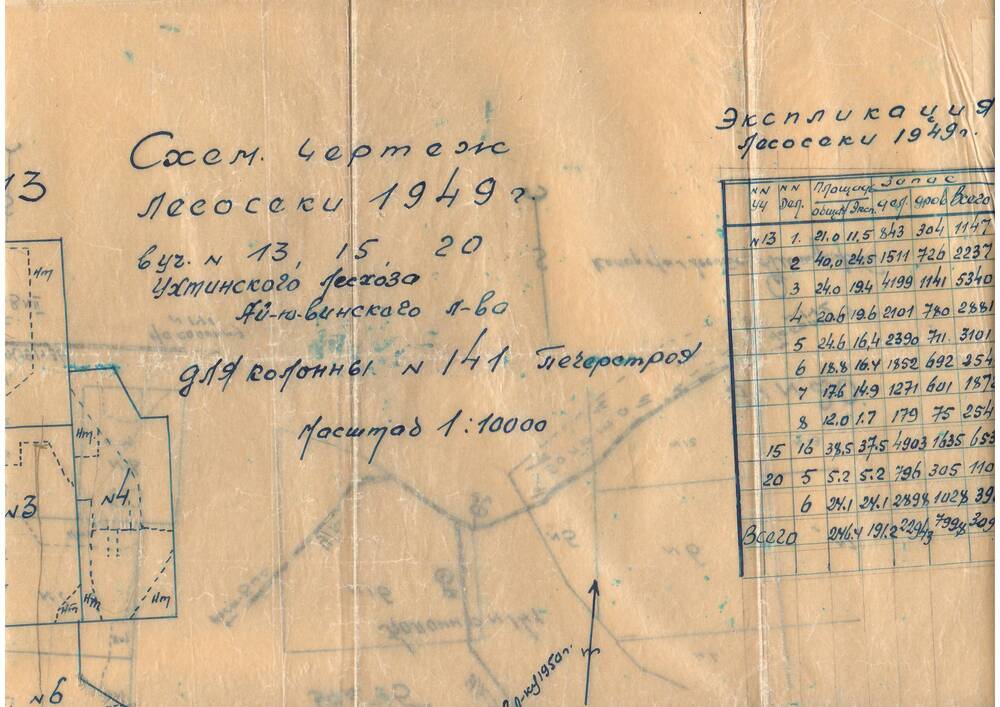 Схем. чертеж
лесосеки 1949 г
в уч. № 13, 15, 20
Ухтинского лесхоза
Ай-ю-винского л-ва
для колонны № 141 Печерстроя
Масштаб 1:10000
Экспликация
лесосеки 1949 г.
NN уч NN дел. Площадь Запас
общая Эксп. дел. дров Всего
N13 1. 21.0 11,5 843 304 1147
2 40,0 24.5 1511 726 2237
3 24.0 19.4 4199 1141 5340
4 20.6 19.6 2101 780 2881
5 24.6 16,4 2390 711 3101
6 18.8 16.4 1852 692 254
7 17.6 14.9 1271 601 187
8 12.0 1.7 179 75 254
15 16 38,5 37,5 4903 1635 653
20 5 5.2 5.2 796 305 110
6 24.1 24.1 2898 1028 39
Всего 246.4 191.2 22943 7998 309
13
Нт
Нт
N3
N4
Нт
Нт
Нт
N6
1950 г.